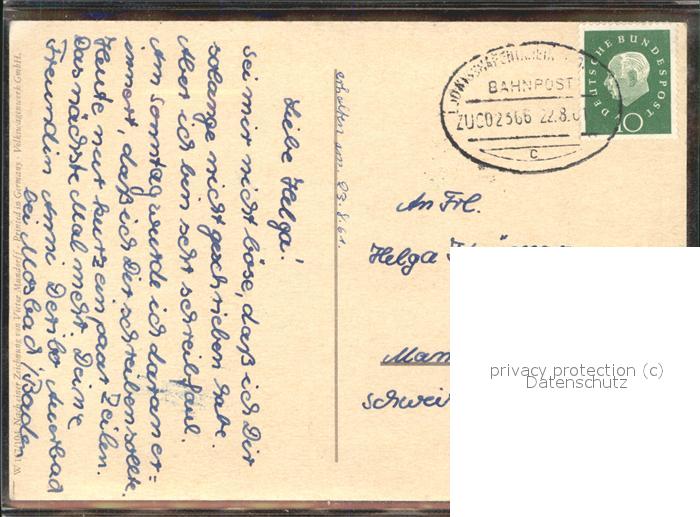 Liebe Helga!
Sei mir nicht böse, daß ich Dir
solange nicht geschrieben habe.
Aber ich bin sehr schreibfaul.
Am Sonntag wurde ich daran er=
innert, daß ich Dir schreiben sollte.
Heute nur kurz ein paar Zeilen.
Das nächste Mal mehr. Deine
Freundin Anni Auerbad
bei Mosbad / Baden
Printed in Germany · Volkswagenwerk GmbH.
erhalten am 23.8.61.
BAHNPOST
ZUG02366 22.8.6
c
DEUTSCHE BUNDESPOST
10
An Frl.
Helga
Man
Schwei
privacy protection (c)
Datenschutz